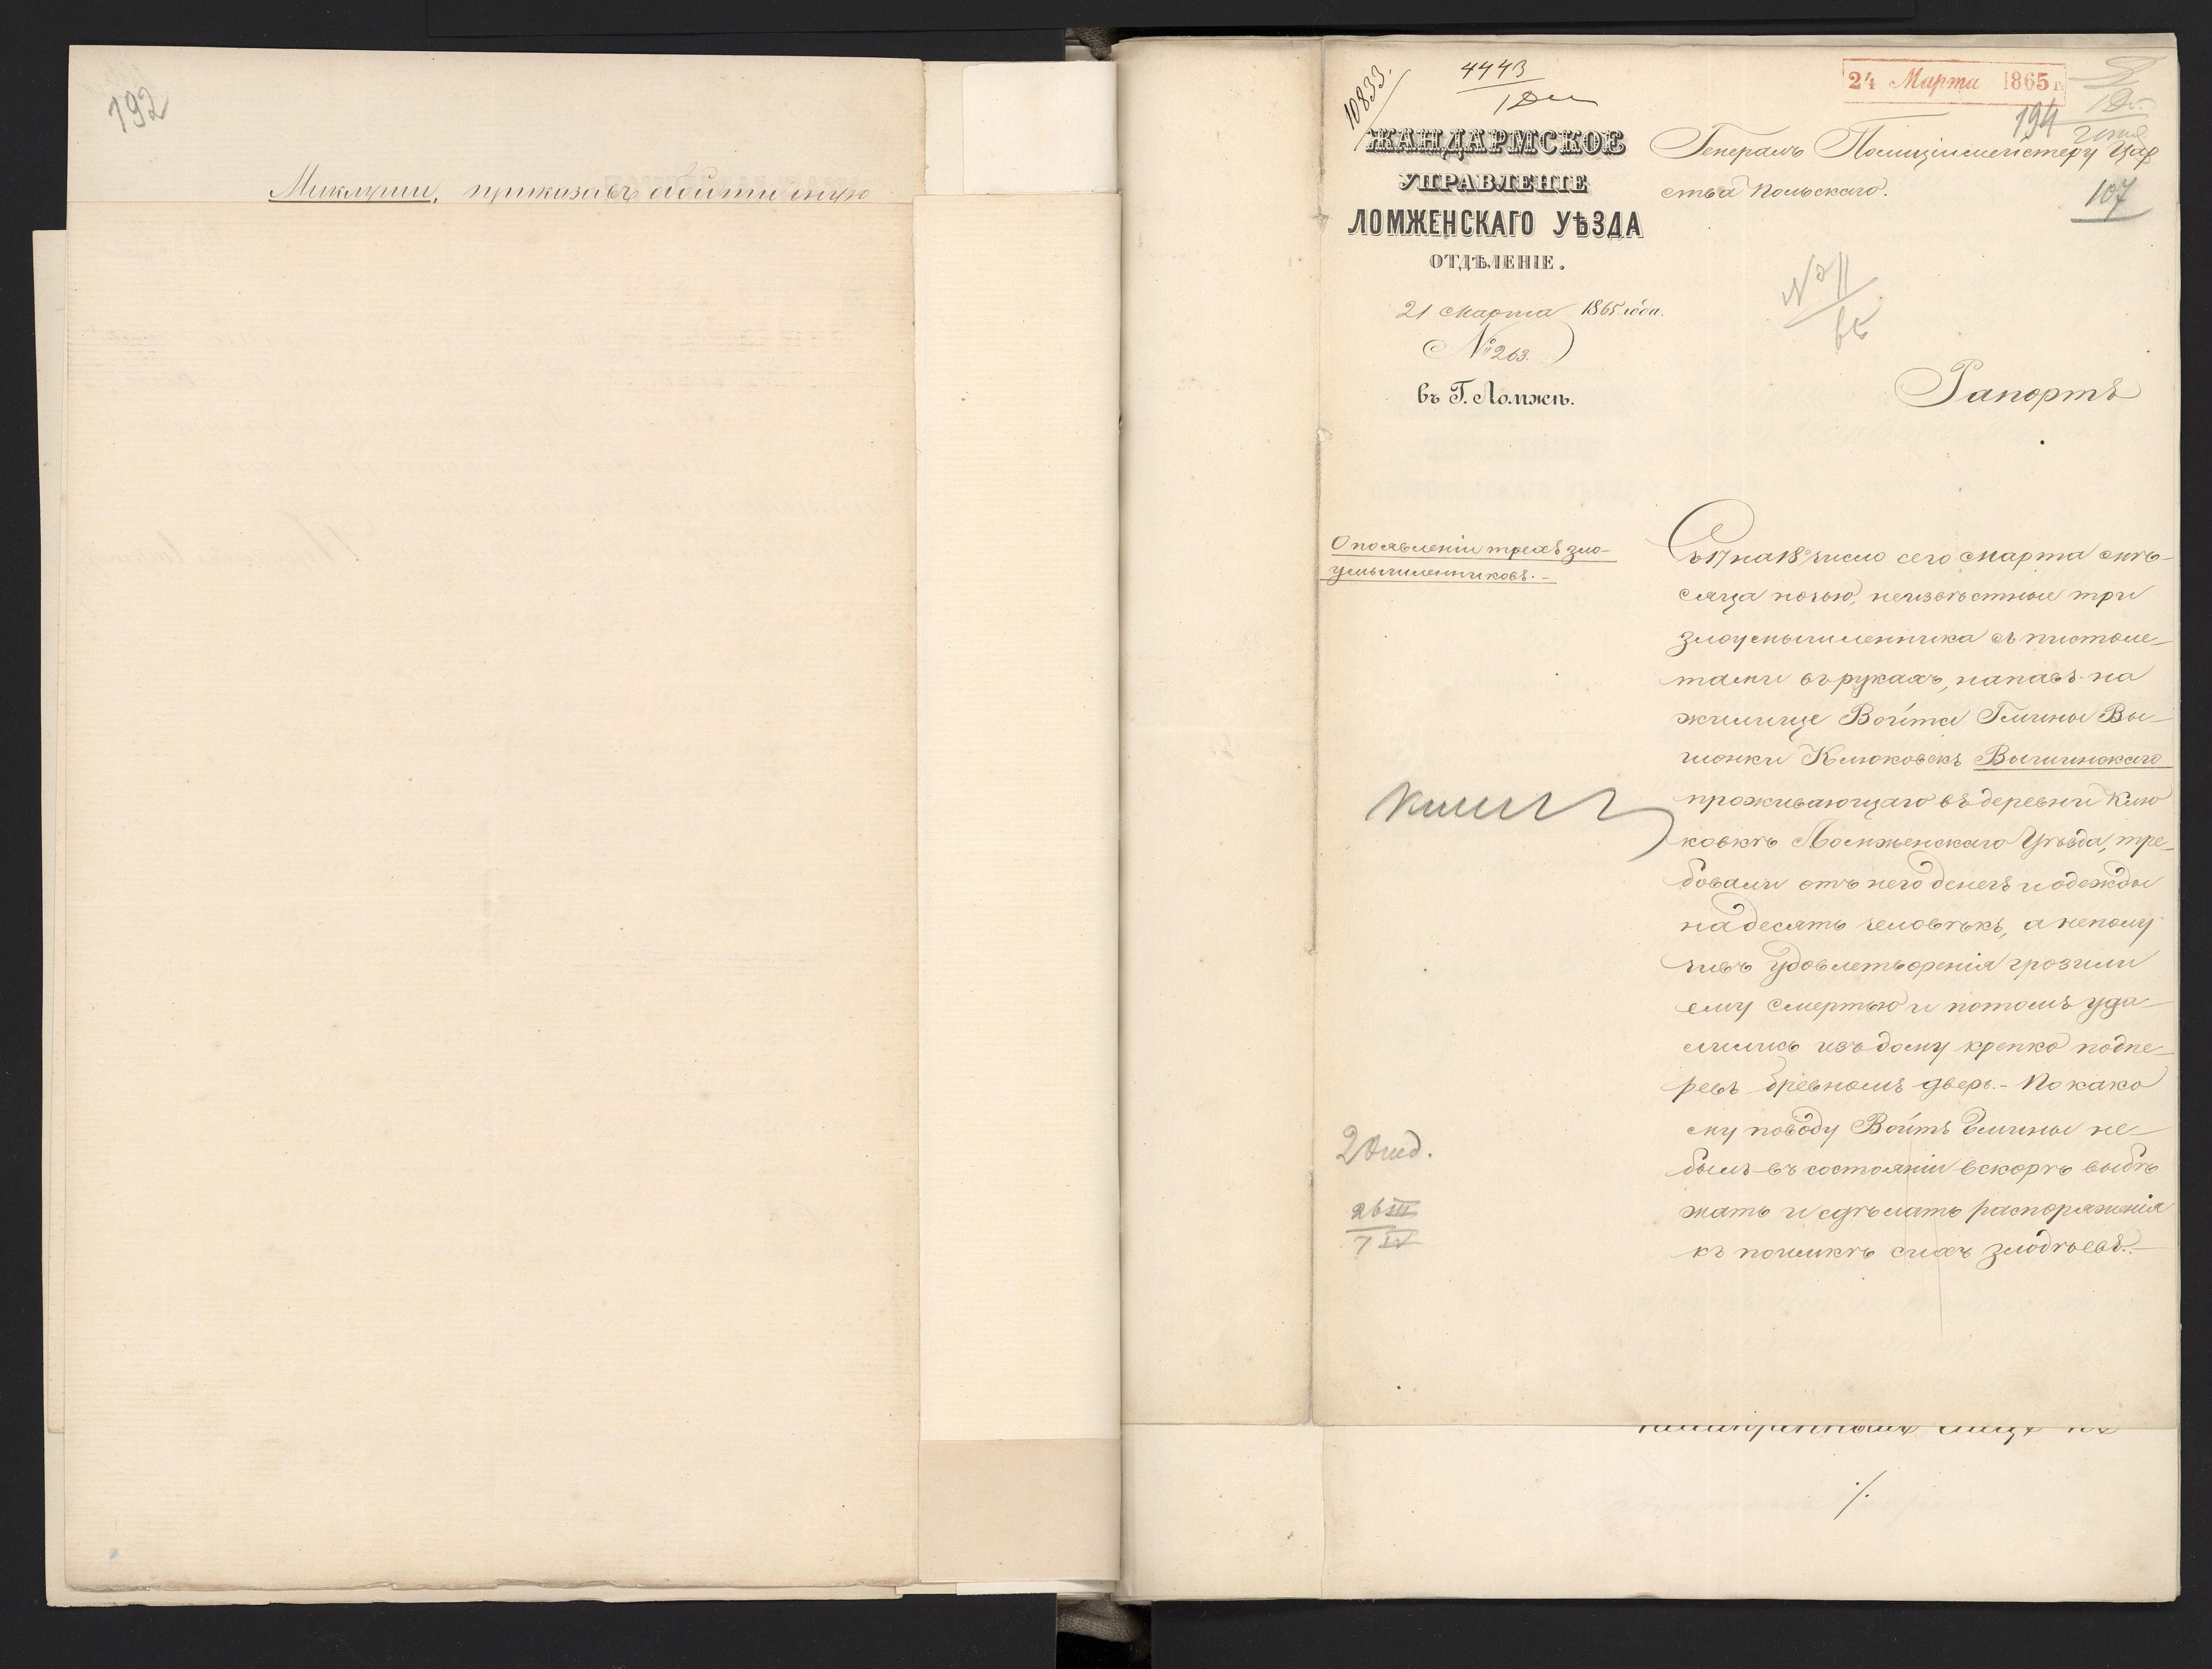 192
Миклуши, приказавъ обойти оную
10833.
4443
24 Марта 1865 г.
194
ЖАНДАРМСКОЕ
УПРАВЛЕНІЕ
ЛОМЖЕНСКАГО УѢЗДА
ОТДѢЛЕНІЕ.
21 Марта 1865 года.
№ 263.
въ Г. Ломжѣ.
Генералъ Полицiймейстеру Цар
ства Польскаго.
107
№ 11
65
Рапортъ
О появленіи трехъ зло-
умышленниковъ.-
Съ 17 на 18 число сего Марта мѣ-
сяца ночью, неизвѣстные три
злоумышленника съ пистоле-
тами въ рукахъ, напавъ на
жилище Войта Гмины Вы-
шонки Клюковекъ Вышинскаго
проживающаго въ деревни Клю
ковкѣ Ломженскаго Уѣзда, тре-
бовали отъ него денегъ и одежды
на десять человѣкъ, а неполу
чивъ удовлетворенія грозили
ему смертью и потомъ уда-
лились изъ дому крепко подпе-
ревъ бревномъ дверь.- По како
му поводу Войтъ Гмины не
былъ въ состояніи вскорѣ выбѣ
жать и сдѣлать распоряженія
къ поимкѣ сихъ злодѣевъ.-
2 Отд.
26 III
7 IV
./.